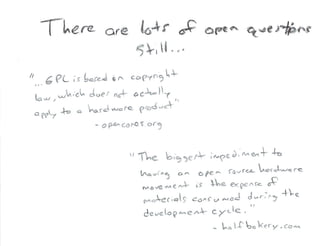 There are lots of open questions
still...
"...GPL is based on copyright
law, which does not actually
apply to a hardware product"
- opencores.org
"The biggest impediment to
having an open source hardware
movement is the expense of
materials consumed during the
development cycle."
- halfbakery.com